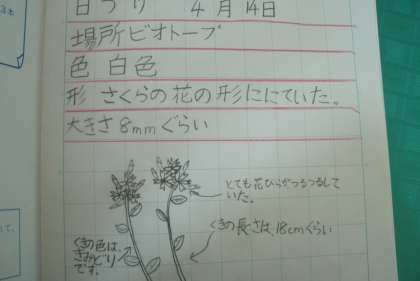 日づけ 4月14日
場所ビオトープ
色 白色
形 さくらの花の形ににていた。
大きさ8mmぐらい
とても花びらがつるつるして
いた。
くきの長さは、18cmぐらい
くきの色は、
きみどり
です。